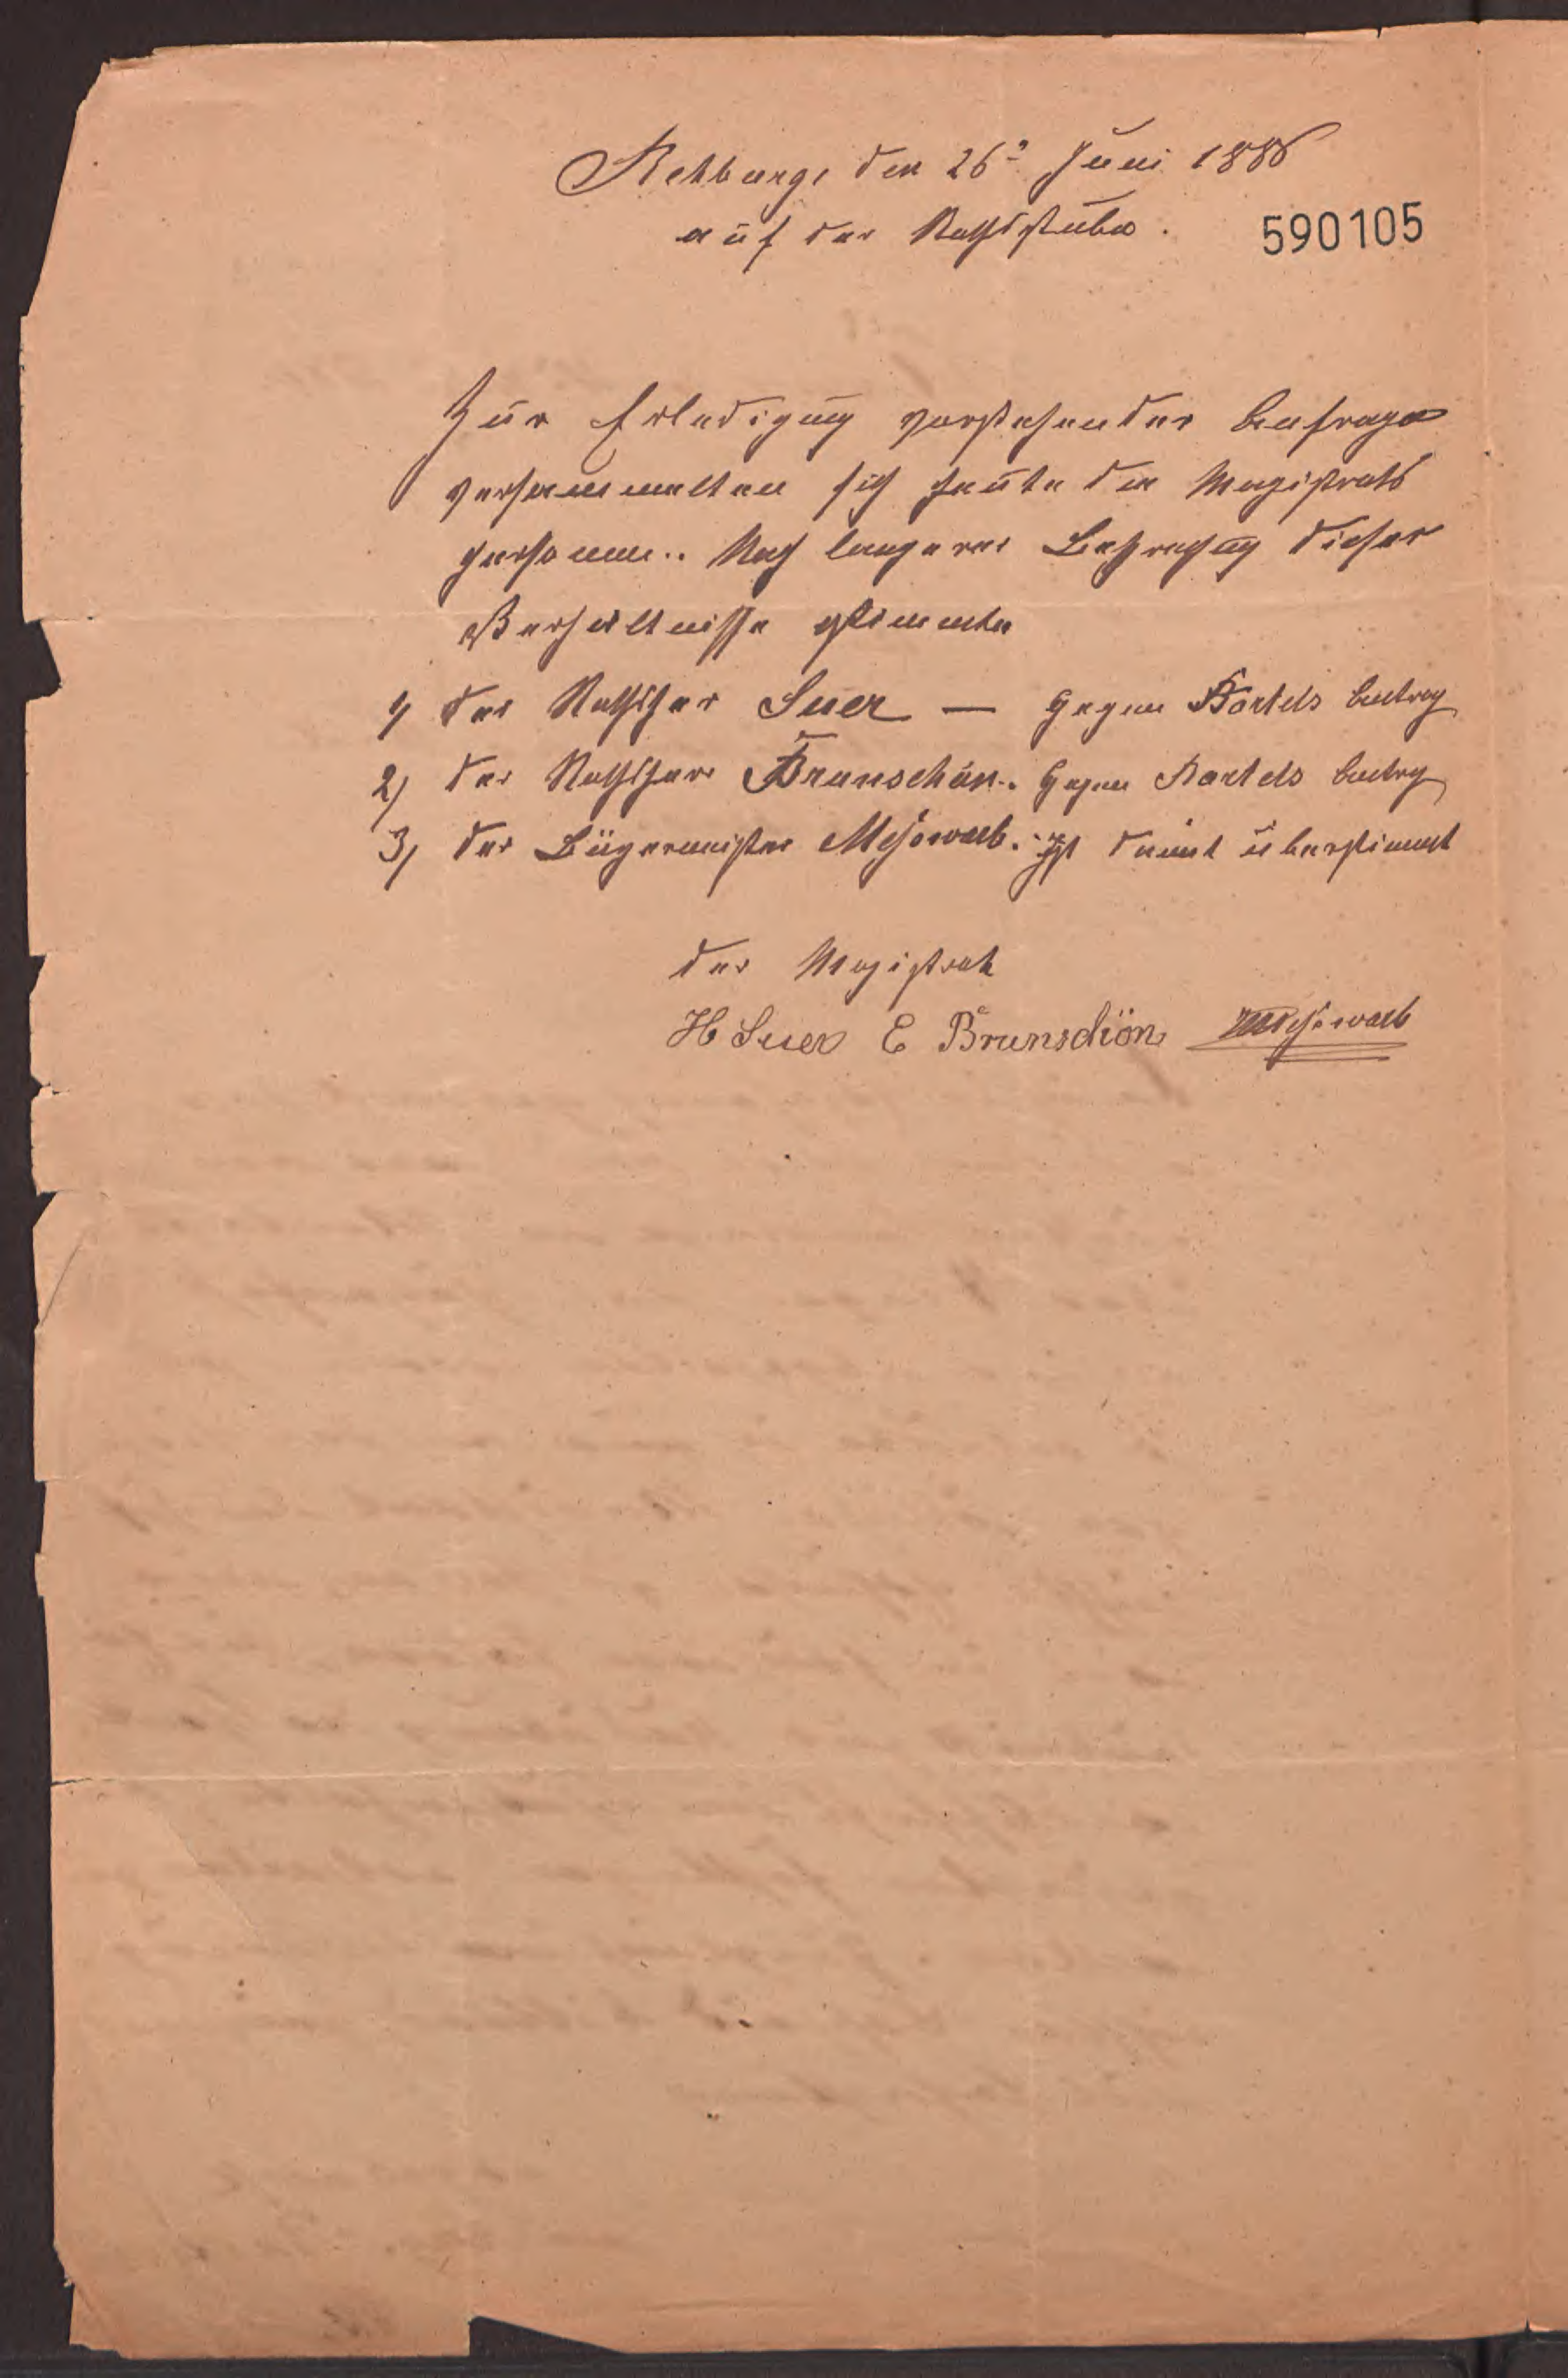 Rehburg, den 26ᵗ Juni 1886
auf der Rathsstube.
590105
Zur Erledigung vorstehender Anfrage
versammelten sich heute die Magistrats
personen.. Nach langerer Besprechung dieser
Verhältnisse stimmte
1) der Rathsherr Suer — gegen Bartels Antrag
2) der Rathsherr Brunschön. Gegen Bartels Antrag
3) der Bürgermeister Meßwarb. Ist damit überstimmt
der Magistrat
H Suer E Brunschön Meßwarb